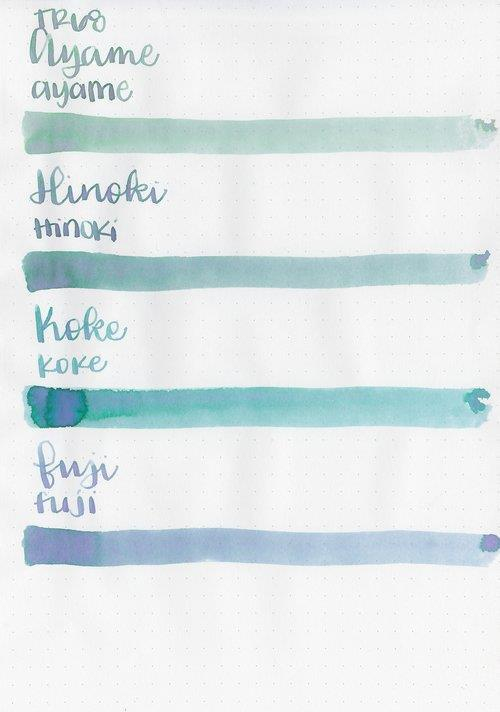 TRV8
Ayame
ayame
Hinoki
Hinoki
Koke
Koke
fuji
fuji